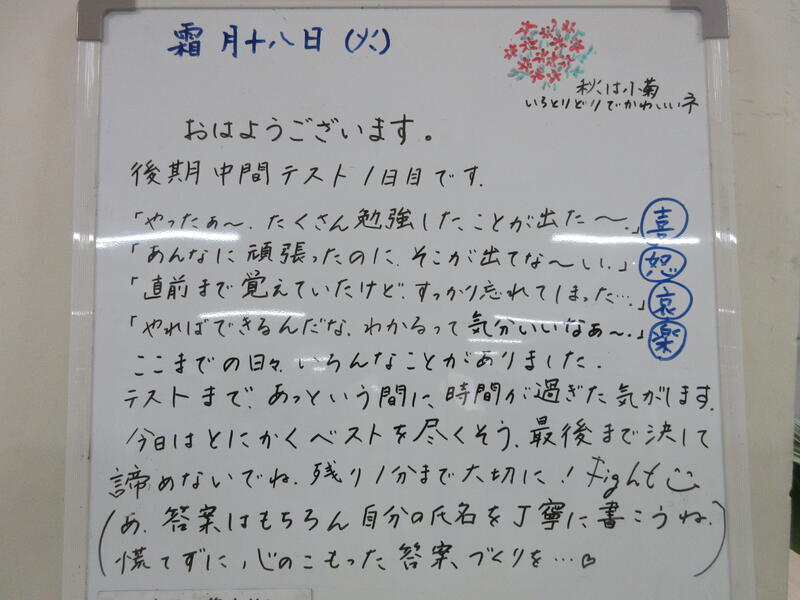 霜月十八日(火)
秋は小菊
いろとりどりでかわいいネ
おはようございます。
後期中間テスト1日目です.
「やったぁ〜.たくさん勉強したことが出た〜.」喜
「あんなに頑張ったのに、そこが出てな〜しい.」怒
「直前まで覚えていたけど、すっかり忘れてしまった….」哀
「やればできるんだな、わかるって気分いいなぁ〜.」楽
ここまでの日々、いろんなことがありました.
テストまで、あっという間に、時間が過ぎた気がします.
今日はとにかくベストを尽くそう、最後まで決して
諦めないでね.残り1分まで大切に!fight
(あ、答案はもちろん自分の氏名を丁寧に書こうね.
慌てずに、心のこもった答案づくりを…♡)